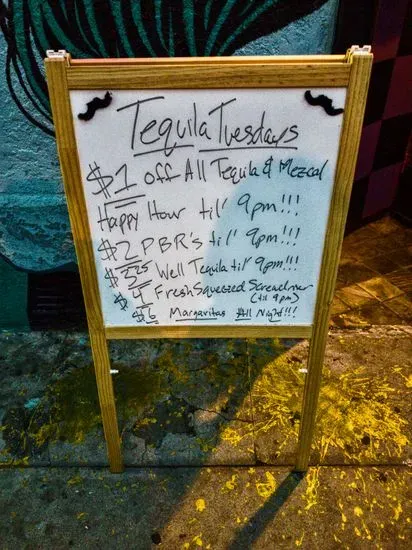 Tequila Tuesdays
$1 off All Tequila & Mezcal
Happy Hour til' 9pm!!!
$2 PBR's til' 9pm!!!
Well Tequila til' 9pm!!!
Fresh Squeezed
(til 9pm)
$6 Margaritas All Night!!!